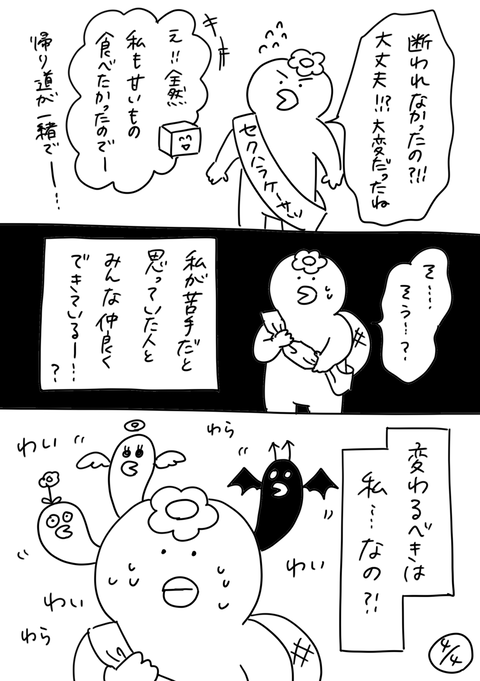 断われなかったの?!!
大丈夫!!?大変だったね
え!!全然
私も甘いもの
食べたかったのでー
帰り道が一緒でー…!
キキ
セクハラケーサツ
そ…
そう…?
私が苦手だと
思っていた人と
みんな仲良く
できているー…!?
変わるべきは
私…なの?!
わい
わら
わい
わい
わら
4/4